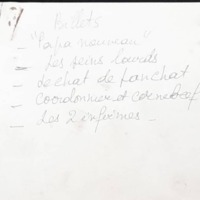 Ballets
"Papa nouveau"
— Les seins lourds
— Le chat de Panchat
— Coordonnier et
— Les 2 infirmes —